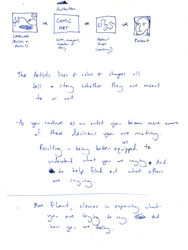 Illustration
or
COMIC
ART
or
or
Landscape
Abstract
Shapes
Portrait
The Artists line + color + shapes all
tell a story whether they are meant
to or not.
- As you continue as an artist you become more aware
of these decisions you are making.
Resulting in being better equipped to
understand what you are saying. And
to help find out what others
are saying
- More Fluent, clearer in expressing what
you are trying to say and
how you are being.